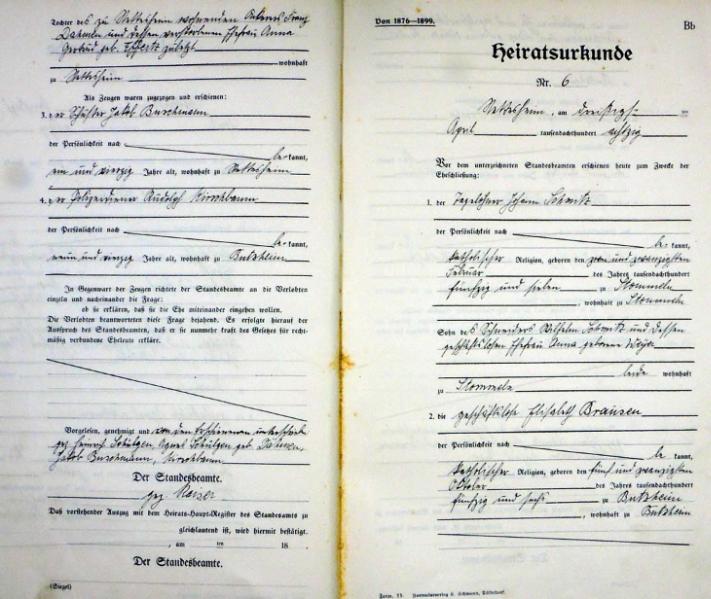 Tochter des zu Nettesheim wohnenden Ackerers Franz
Dahmen und dessen verstorbenen Ehefrau Anna
Gertrud geb. zuletzt
wohnhaft
zu Nettesheim
Als Zeugen waren zugezogen und erschienen:
3. der Schuster Jakob Buschmann
der Persönlichkeit nach
be kannt,
ein und vierzig Jahre alt, wohnhaft zu Nettesheim
4. der Polizeidiener Rudolph Kirschbaum
der Persönlichkeit nach
be kannt,
neun und vierzig Jahre alt, wohnhaft zu Butzheim
In Gegenwart der Zeugen richtete der Standesbeamte an die Verlobten
einzeln und nacheinander die Frage:
ob sie erklären, daß sie die Ehe miteinander eingehen wollen.
Die Verlobten beantworteten diese Frage bejahend. Es erfolgte hierauf der
Ausspruch des Standesbeamten, daß er sie nunmehr kraft des Gesetzes für recht-
mäßig verbundene Eheleute erkläre.
Vorgelesen, genehmigt und von den Erschienenen unterschrieben
gez Heinrich Schützgen, Agnes Schützgen geb. Dahmen,
Jakob Buschmann, Kirschbaum
Der Standesbeamte.
gez Kaiser
Daß vorstehender Auszug mit dem Heirats-Haupt-Register des Standesamts zu
gleichlautend ist, wird hiermit bestätigt.
, am ten 18
Der Standesbeamte.
(Siegel)
Von 1876—1899.
Bb
Heiratsurkunde
Nr. 6
Nettesheim, am dreißigs- ten
April tausendachthundert achtzig
Vor dem unterzeichneten Standesbeamten erschienen heute zum Zwecke der
Eheschließung:
1. der Tagelöhner Johann Schmitz
der Persönlichkeit nach
be kannt,
katholischer Religion, geboren den zwei und zwanzigsten
Februar des Jahres tausendachthundert
fünfzig und sieben zu Stommeln
, wohnhaft zu Stommeln
Sohn des Schneiders Wilhelm Schmitz und dessen
geschäftslosen Ehefrau Anna geborene Meyer
beide wohnhaft
zu Stommeln
2. die geschäftslose Elisabeth Brausen
der Persönlichkeit nach
be kannt,
katholischer Religion, geboren den fünf und zwanzigsten
Oktober des Jahres tausendachthundert
fünfzig und sechs zu Butzheim
, wohnhaft zu Butzheim